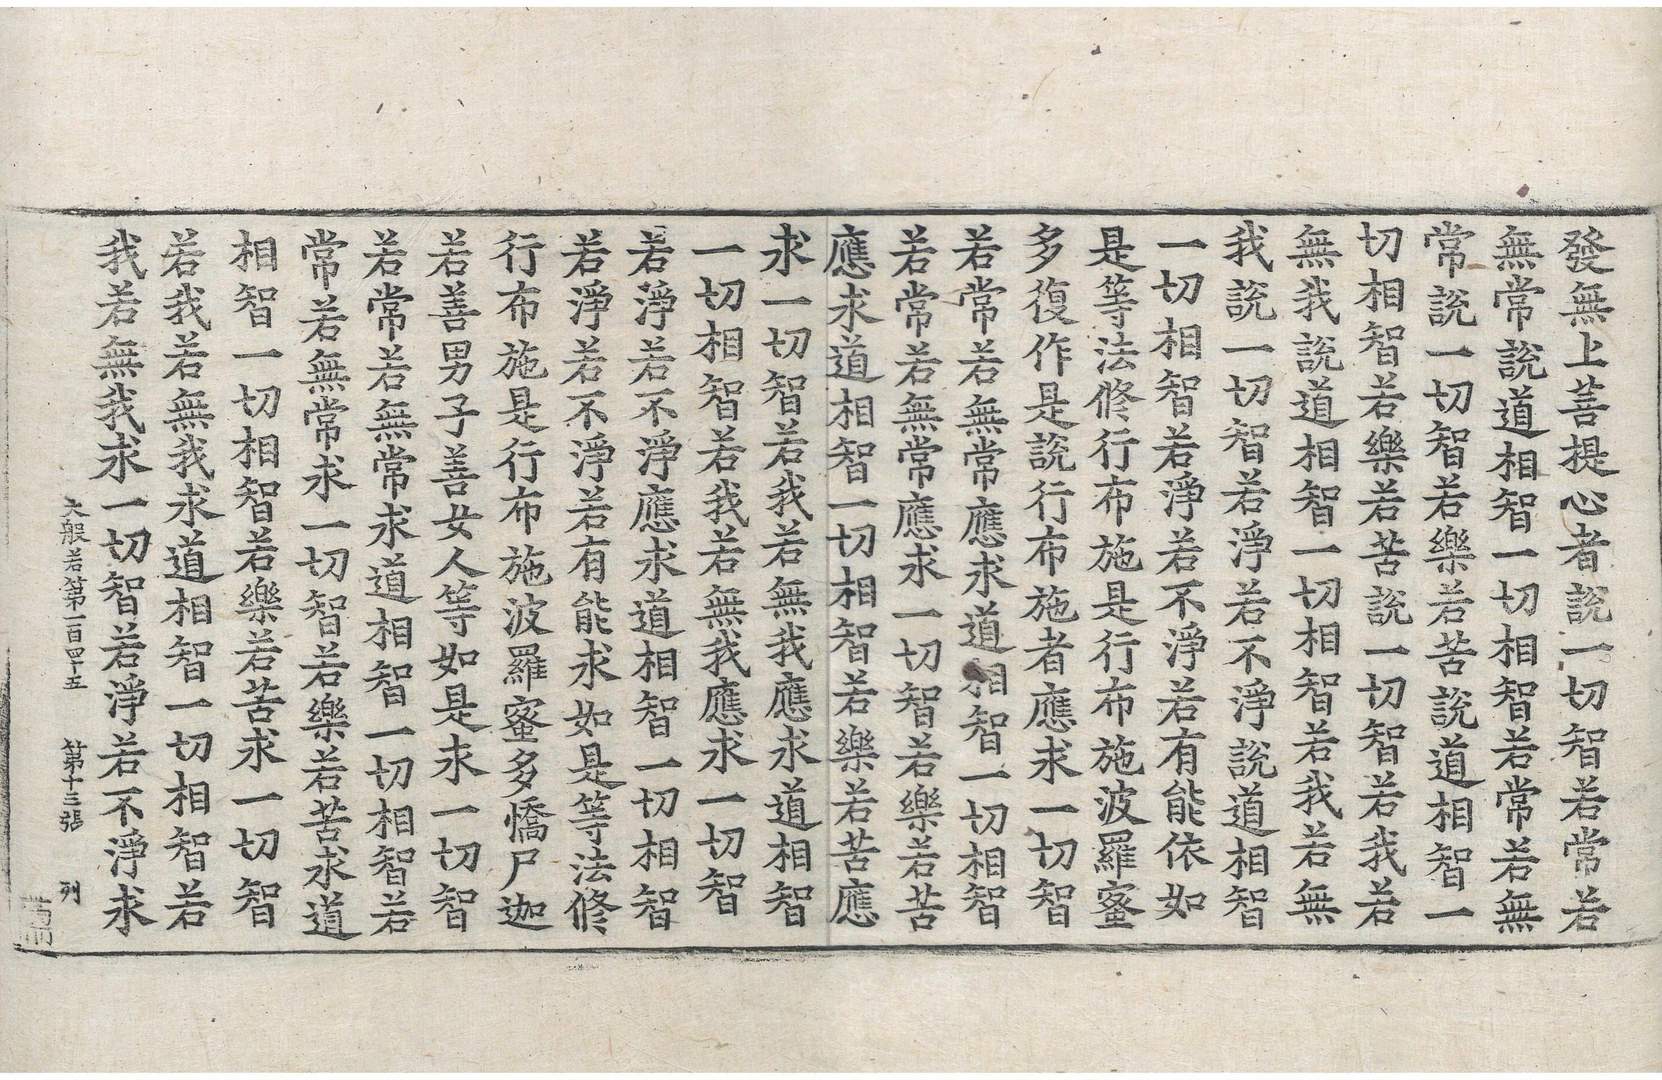 發無上菩提心者說一切智若常若
無常說道相智一切相智若常若無
常說一切智若樂若苦說道相智一
切相智若樂若苦說一切智若我若
無我說道相智一切相智若我若無
我說一切智若淨若不淨說道相智
一切相智若淨若不淨若有能依如
是等法修行布施是行布施波羅蜜
多復作是說行布施者應求一切智
若常若無常應求道相智一切相智
若常若無常應求一切智若樂若苦
應求道相智一切相智若樂若苦應
求一切智若我若無我應求道相智
一切相智若我若無我應求一切智
若淨若不淨應求道相智一切相智
若淨若不淨若有能求如是等法修
行布施是行布施波羅蜜多憍尸迦
若善男子善女人等如是求一切智
若常若無常求道相智一切相智若
常若無常求一切智若樂若苦求道
相智一切相智若樂若苦求一切智
若我若無我求道相智一切相智若
我若無我求一切智若淨若不淨求
大般若第一百四十五 第十三張 列